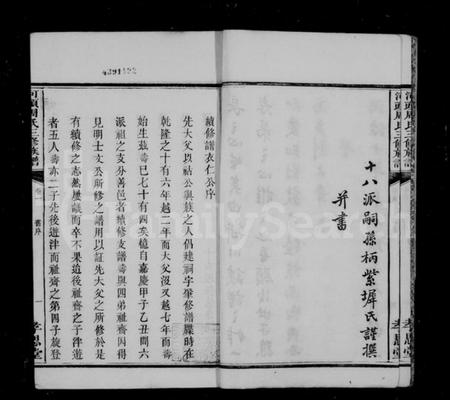 4391122
河頭周氏三修族譜
十八派嗣孫柄紫墀氏謹撰
并書
孝思堂
續修譜衣仁公序
先大父以祜公與族之人倡建祠字舉修譜牒時在
乾隆之十有六年越二年而大父沒又越七年而壽
始生茲壽已七十有四矣憶自嘉慶甲子乙丑間六
派祖之支分善邑者續修支譜壽與四弟祖齋因得
見明士文公所修之譜用以証先大父之所修於是
有續修之志然屢議而卒不果迨後祖齋之子泮遊
者五人壽亦二子先後遊泮而祖齋之第四子旋登
河頭周氏三修族譜
舊序
一
孝思堂
FamilySearch